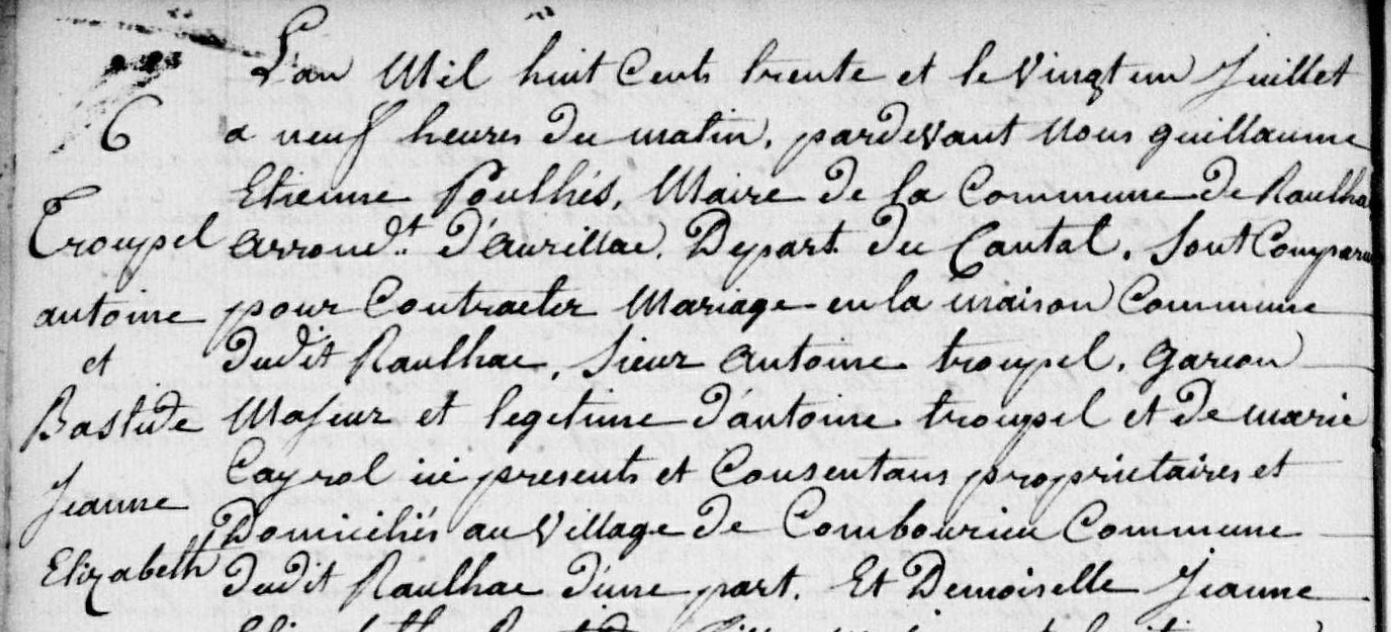 L'an Mil huit Cents trente et le vingt un Juillet
6
a neuf heures du matin. pardevant Nous guillaume
Etienne Poulhés, Maire de la Commune de Raulhac
Troupel
arrond.t d'aurillac. Depart. du Cantal. Sont Comparus
antoine
pour Contracter Mariage en la maison Commune
et
dudit Raulhac, Sieur antoine troupel. garcon
Bastide
Majeur et legetime d'antoine troupel et de marie
Cayrol ici presents et Consentans proprietaires et
Jeanne
Domiciliés au village de Combourieu Commune
Elizabeth
dudit Raulhac d'une part. Et Demoiselle Jeanne